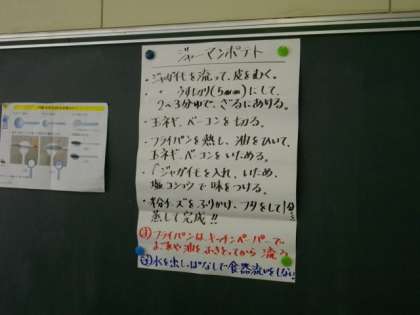 ジャーマンポテト
・ジャガイモを洗って、皮をむく。
・ 〃 うす切り(5mm)にして、
2〜3分ゆで、ざるにあける。
・玉ネギ、ベーコンを切る。
・フライパンを熱し、油をひいて、
玉ネギ、ベーコンをいためる。
・「ジャガイモを入れ、いため、
塩コショウで味をつける。
・粉チーズをふりかけ、フタをして1分
蒸して完成!!
フライパンは、キッチンペーパーで、
よごれや油をふきとってから洗う
水を出しっぱなしで食器洗いをしない